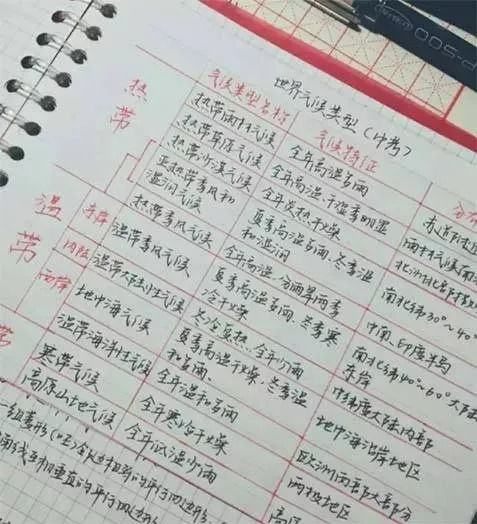 世界气候类型（中考）
气候类型名称 气候特征 分布
热带
热带雨林气候 全年高温多雨
热带草原气候 全年高温，干湿季明显
热带沙漠气候 全年炎热干燥
亚热带季风和湿润气候 夏季高温多雨、冬季温和湿润 南北纬30°～40°
热带季风气候 全年高温，分雨旱两季 中南、印度半岛
温带
东岸 温带季风气候 夏季高温多雨、冬季寒冷干燥 南北纬40°～60°大陆东岸
内陆 温带大陆性气候 冬冷夏热，全年少雨 中纬度大陆内部
西岸 地中海气候 夏季高温干燥，冬季温和多雨、 地中海沿岸地区
温带海洋性气候 全年温和多雨 欧洲西部大部分
带
寒带气候 全年寒冷干燥 两极地区
高原山地气候 全年低温少雨
一组菱形
互相垂直的平行四边形
P-500